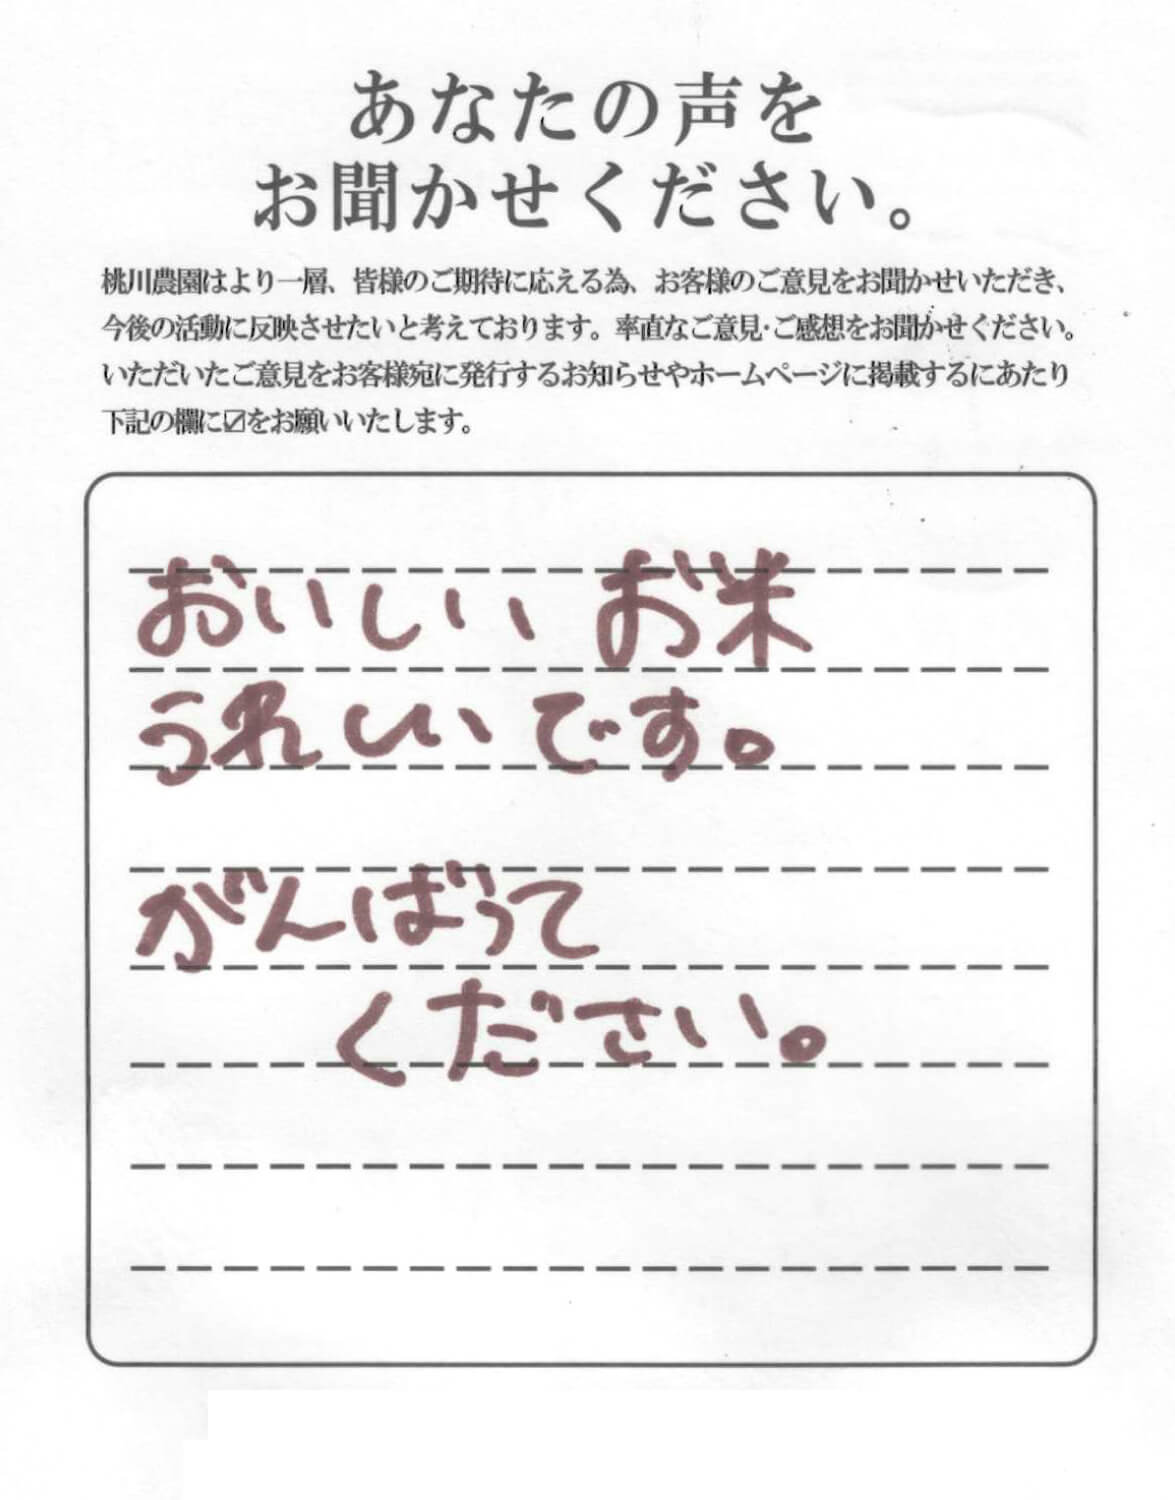 あなたの声を
お聞かせください。
桃川農園はより一層、皆様のご期待に応える為、お客様のご意見をお聞かせいただき、
今後の活動に反映させたいと考えております。率直なご意見･ご感想をお聞かせください。
いただいたご意見をお客様宛に発行するお知らせやホームページに掲載するにあたり
下記の欄に☑をお願いいたします。
おいしい お米
うれしいです。
がんばって
ください。